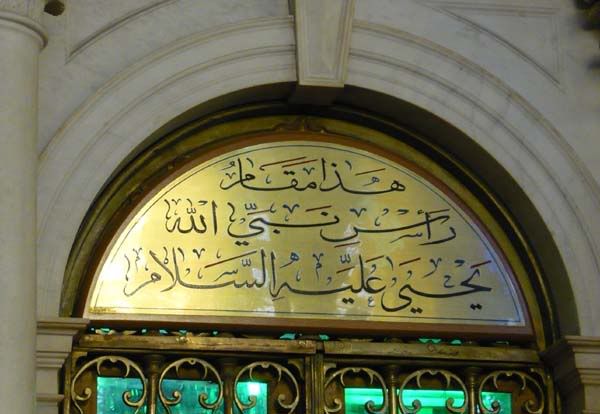 هذا مقام
رأس نبي الله
يحيى عليه السلام